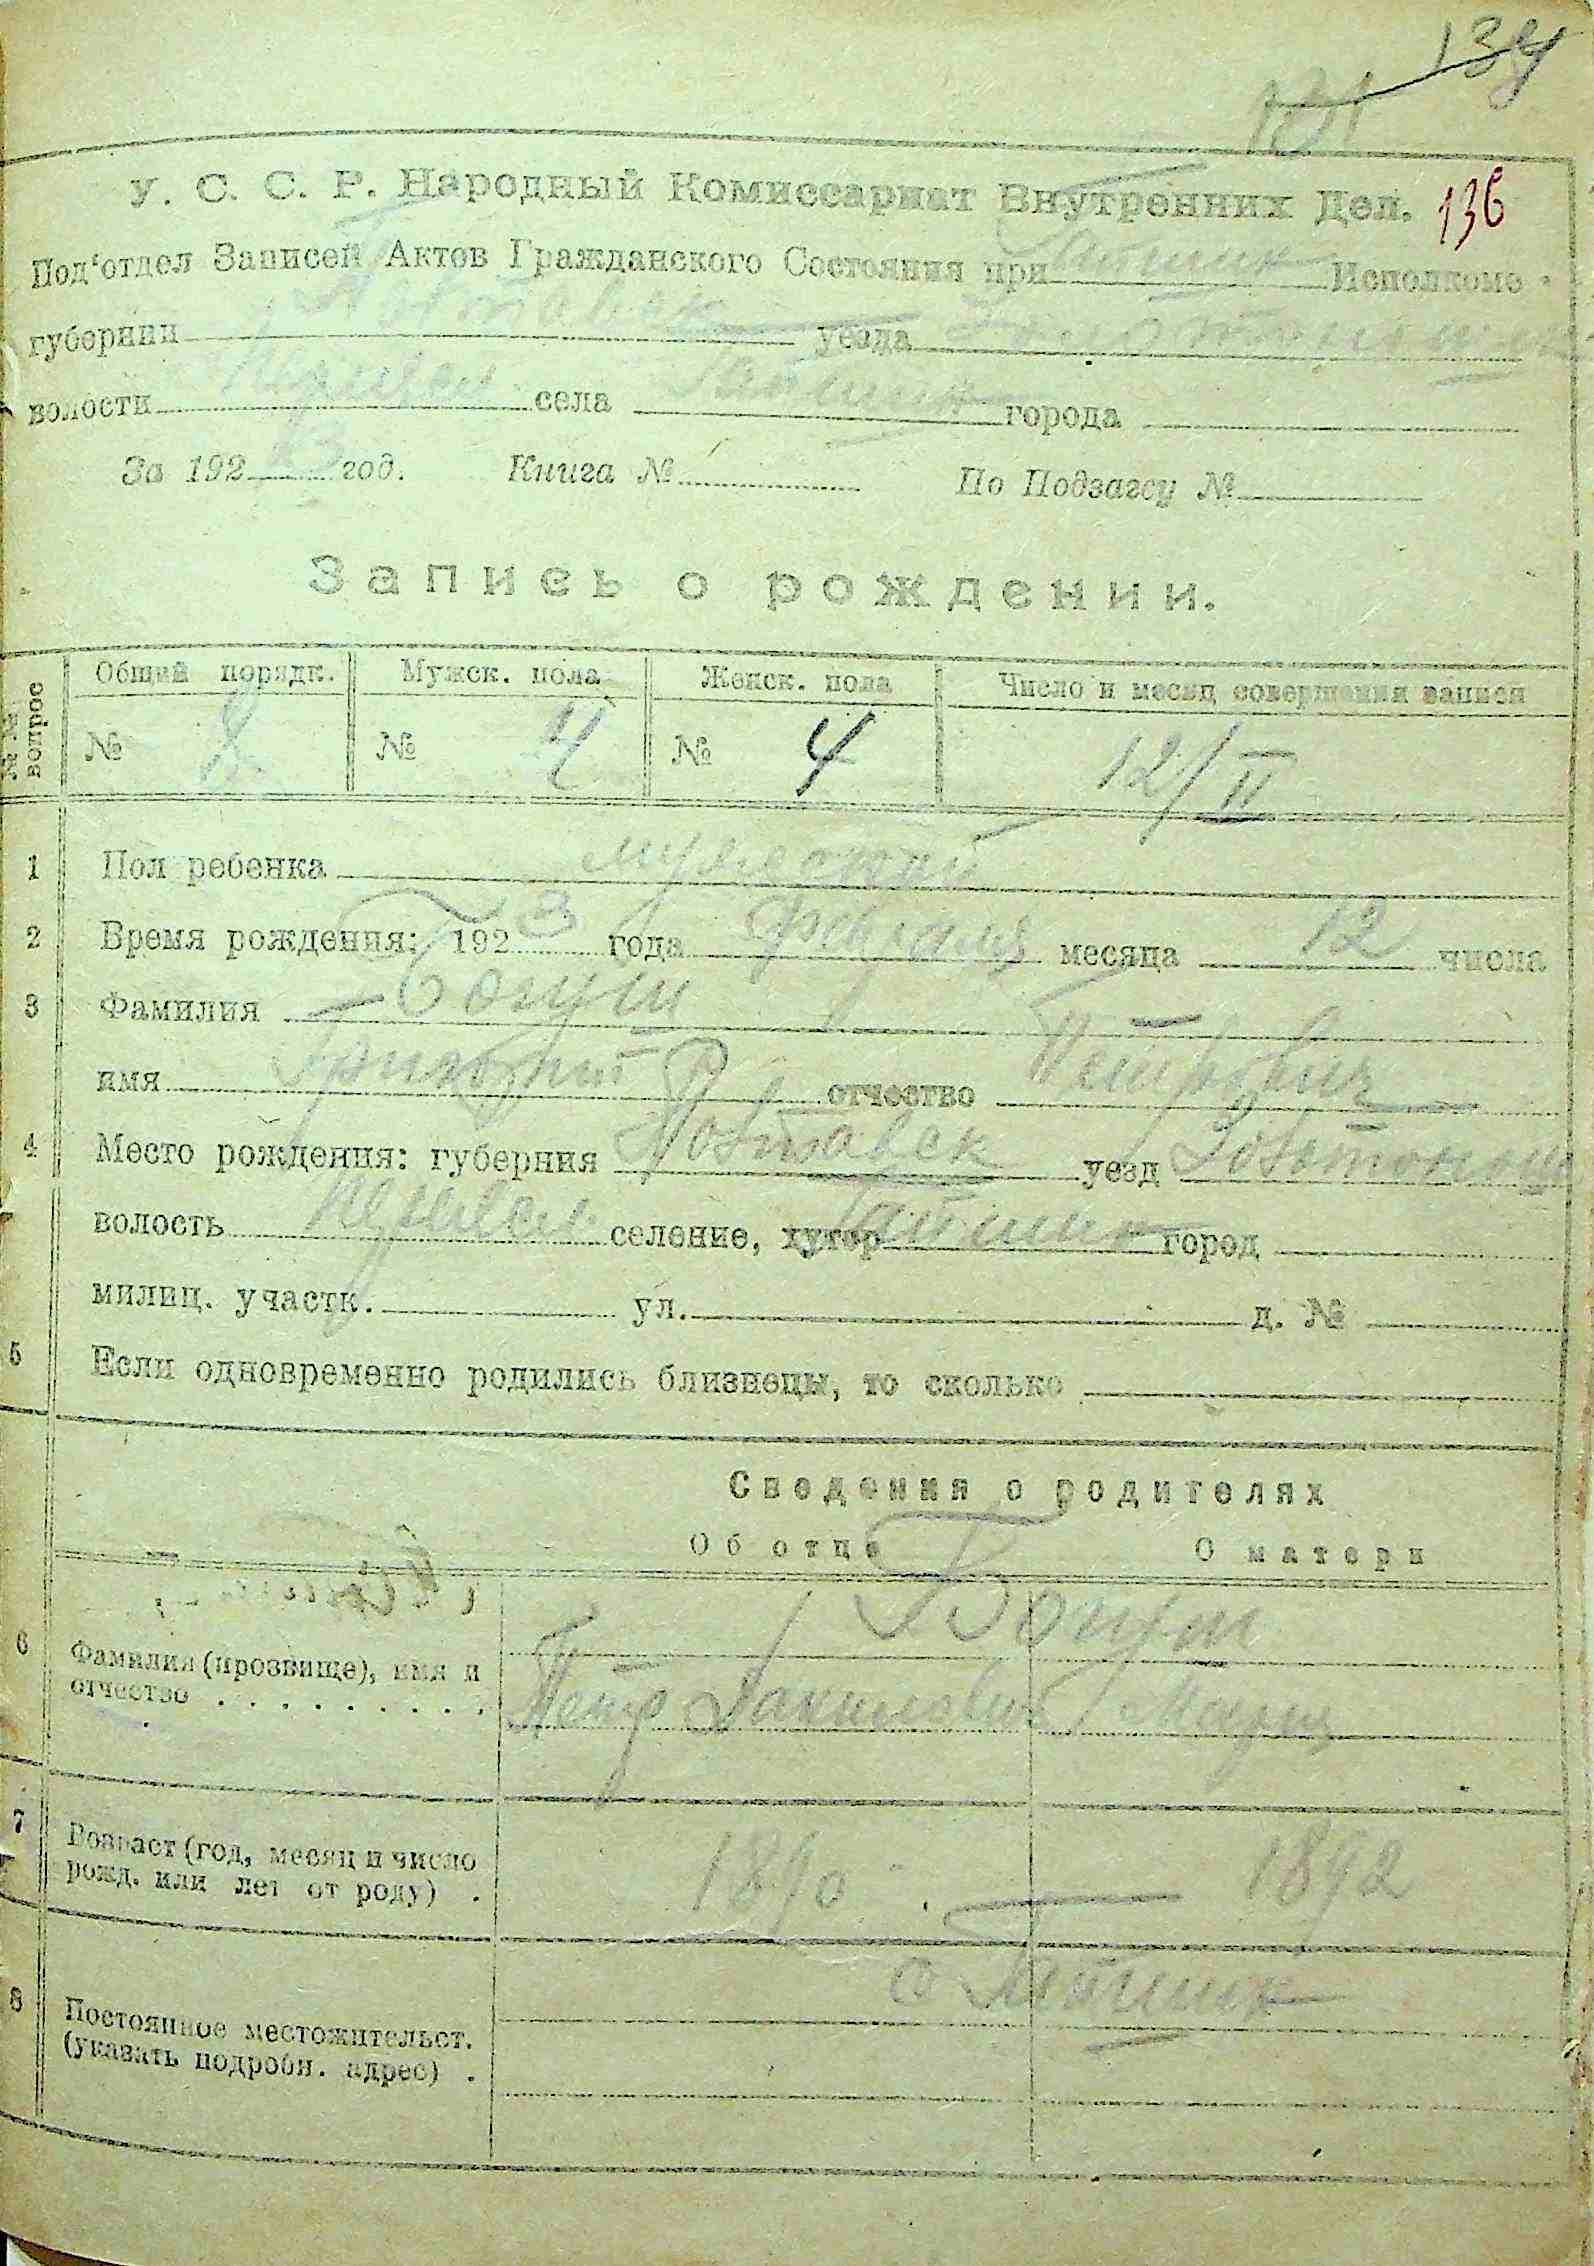 138
131
У. С. С. Р. Народный Комиссариат Внутренних Дел. 136
Под'отдел Записей Актов Гражданского Состояния при Исполкоме
губернии Полтавск уезда Золотоношск
волости села города
За 1923 год. Книга № По Подзагсу №
Запись о рождении.
№№ вопрос Общий порядк. Мужск. пола Женск. пола Число и месяц совершения записи
№ 8 № 4 № 4 12/II
1 Пол ребенка мужской
2 Время рождения: 1923 года февраля месяца 12 числа
3 Фамилия
имя Григорий отчество Петрович
4 Место рождения: губерния Полтавск уезд Золотонош
волость селение, хутор город
милиц. участк. ул. д. №
5 Если одновременно родились близнецы, то сколько
Сведения о родителях
Об отце О матери
6 Фамилия (прозвище), имя и
отчество Петр Данилович / Мария
7 Возраст (год, месяц и число
рожд. или лет от роду) . 1890 1892
8 Постоянное местожительст.
(указать подробн. адрес) .